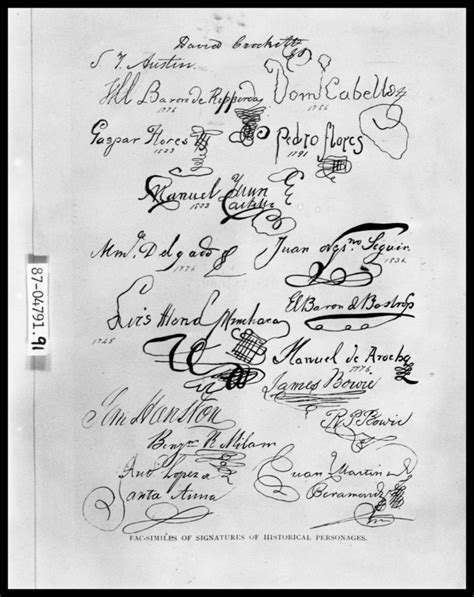 David Crockett
S F Austin
El Baron de Ripperda
1776
Dom Cabello
1786
Gaspar Flores
1823
Pedro Flores
1791
Manuel Yturri
Castillo
Man. Delgado
1776
Juan Nepno Seguin
1836
Luis Mond Menchaca
1745
El Baron de Bastrop
Manuel de Arocha
1776
James Bowie
Sam Houston
R P Bowie
Benjn R Milam
Anto Lopez de
Santa Anna
Juan Martin de
Beramendi
FAC-SIMILES OF SIGNATURES OF HISTORICAL PERSONAGES.
87-04791.91